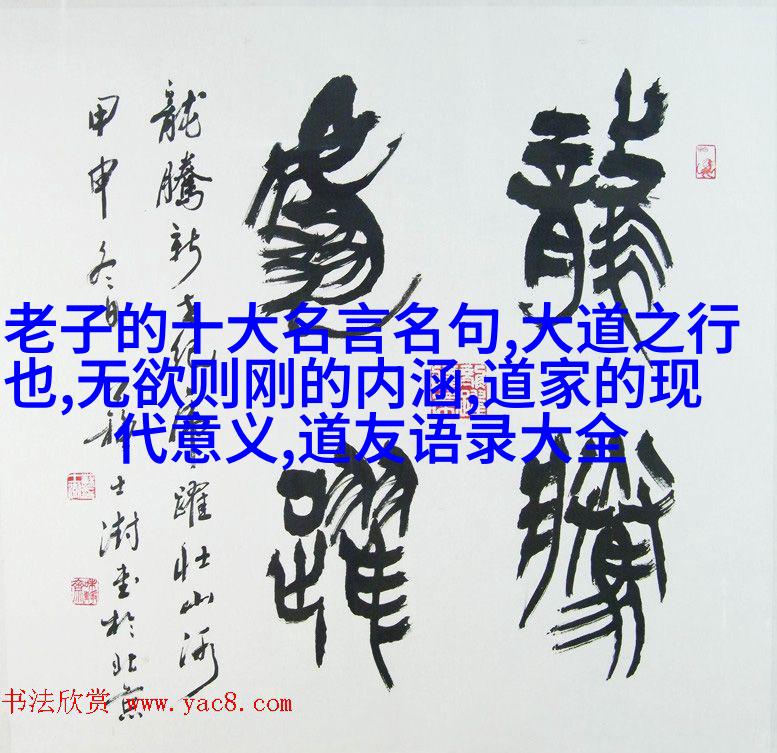 龍騰
虎躍
龍騰新世紀虎躍壯山河
甲申冬日 士澍书於北京
老子的十大名言名句,大道之行
也,无欲则刚的内涵,道家的现
代意义,道友语录大全
书法欣赏 www.yac8.com